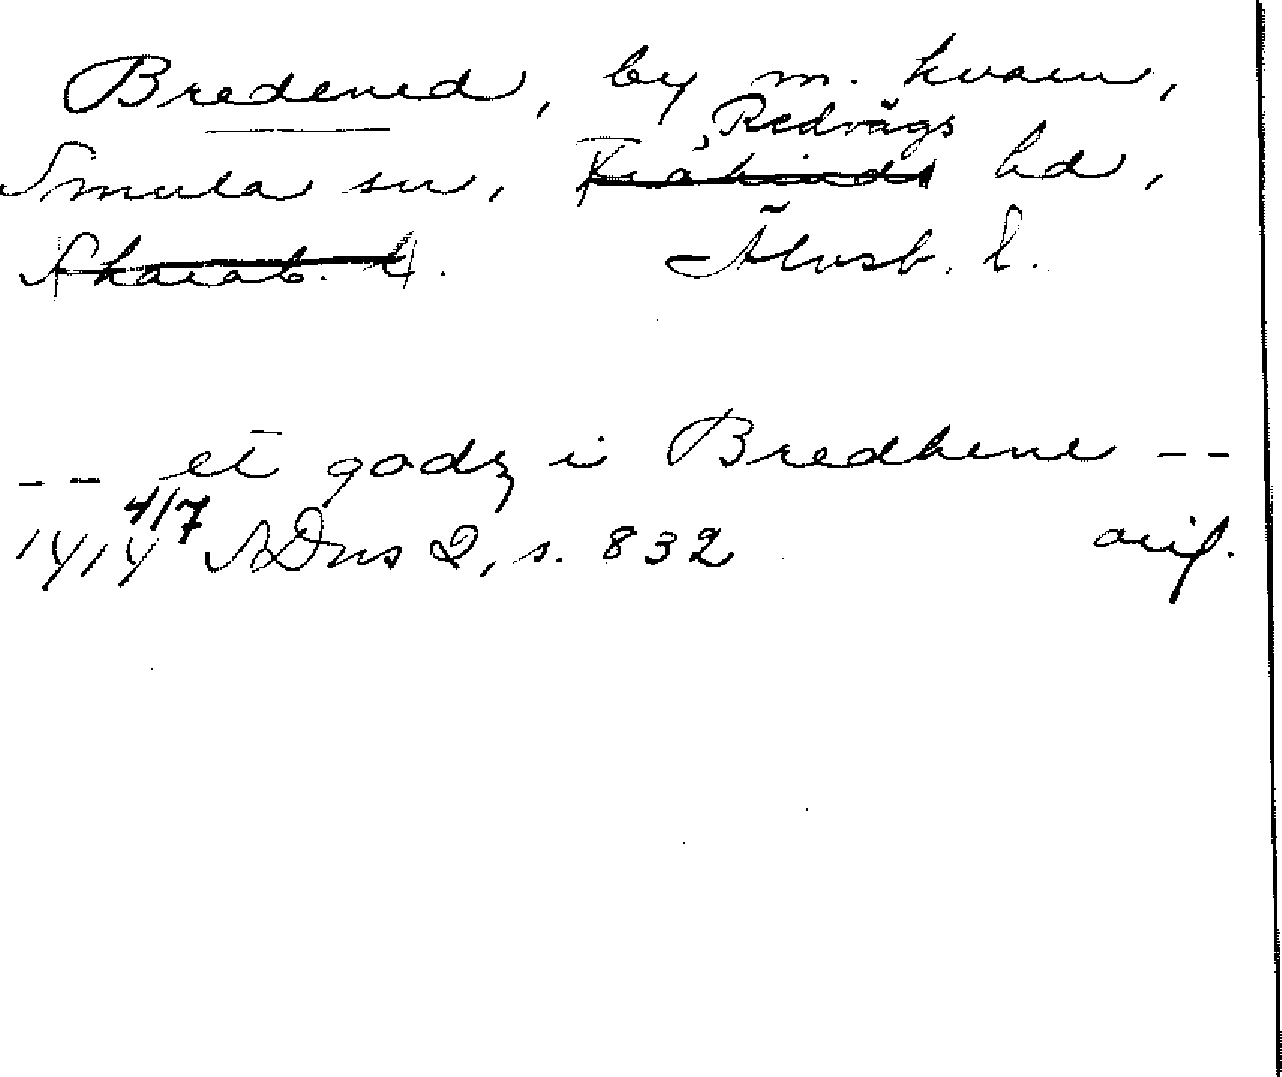 Bredened, by m. kvarn,
Redvägs
Smula sn, Frökinds hd,
Skarab. l. Älvsb. l.
-- et godz i Bredhene --
1414 4/7 SDns 2, s. 832 orig.